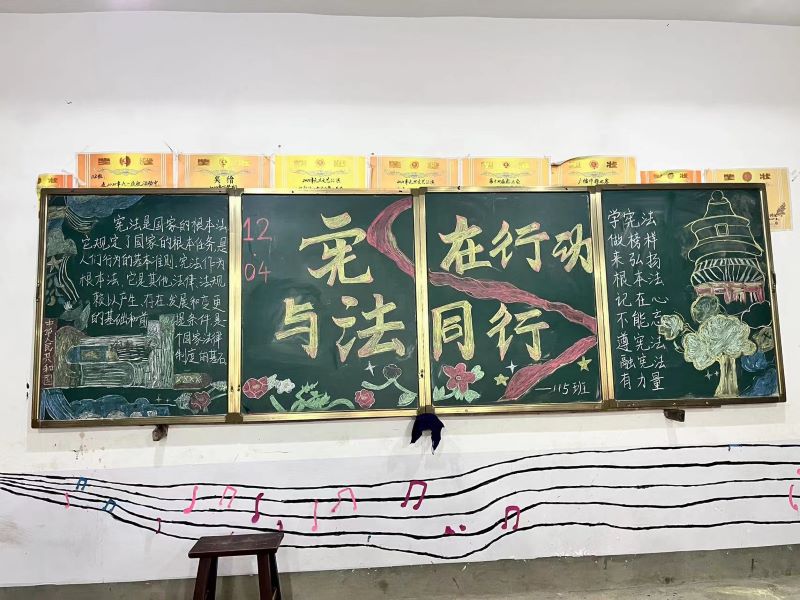 宪法是国家的根本法
它规定了国家的根本任务是
人们行为的基本准则.宪法作为
根本法、它是其他法律、法规
赖以产生、存在、发展和变更
的基础和前提条件.是
个国家法律
制度的基石
中华人民共和国
12
.04
宪
与法
在行动
同行
—115班
学宪法
做榜样
来弘扬
根本法
记在心
不能忘
遵宪法
融宪法
有力量
奖状